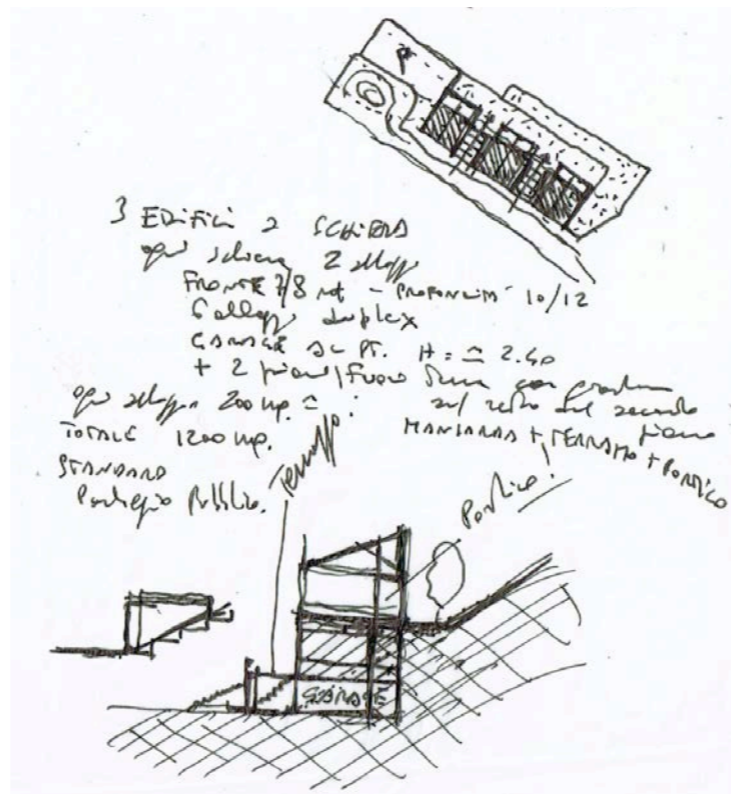 P
3 EDIFICI a SCHIERA
ogni schiera 2 alloggi
FRONTE 7/8 mt - PROFONDITÀ 10/12
6 alloggi duplex
GARAGE al PT. H = ≃ 2.40
+ 2 piani / FUORI
sul retro del secondo piano
ogni alloggio 200 mq. ≃
TOTALE 1200 mq.
MANSARDA + TERRAZZO + PORTICO
STANDARD
Parcheggio Pubblico.
Terrazzo
Portico!
GARAGE